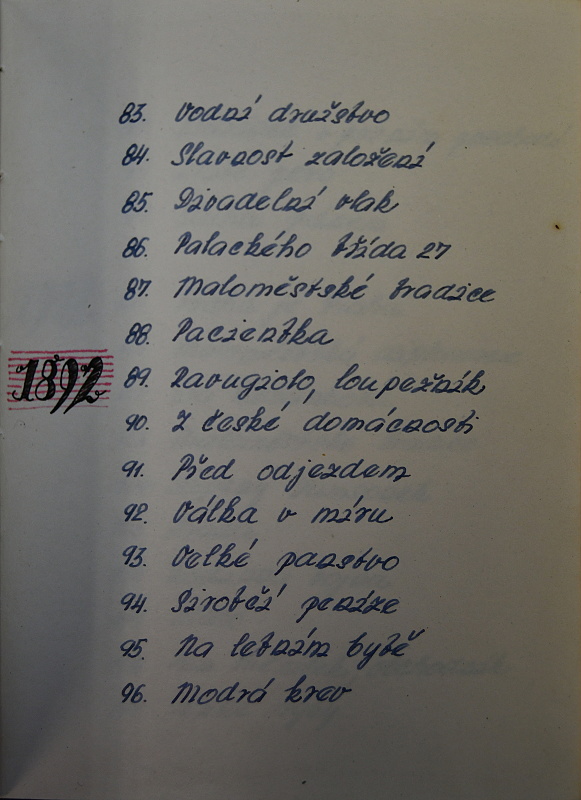 83. Vodní družstvo
84. Slavnost založení
85. Divadelní vlak
86. Palackého třída 27
87. Maloměstské tradice
88. Pacientka
1892
89. Zavugioto, loupežník
90. Z české domácnosti
91. Před odjezdem
92. Válka v míru
93. Velké panstvo
94. Sirotčí peníze
95. Na letním bytě
96. Modrá krev